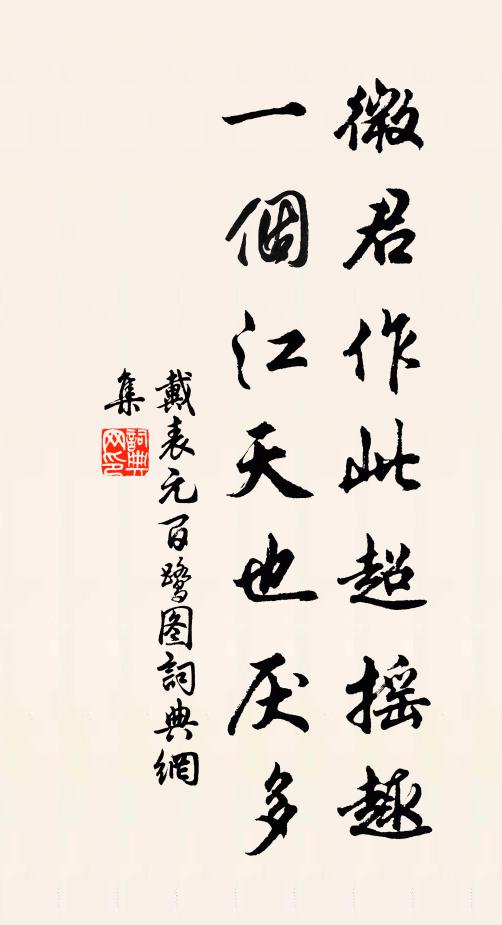 微君作此超摇趣
一個江天也厌多
戴表元百鹭图詞典網
集
詞典
网印